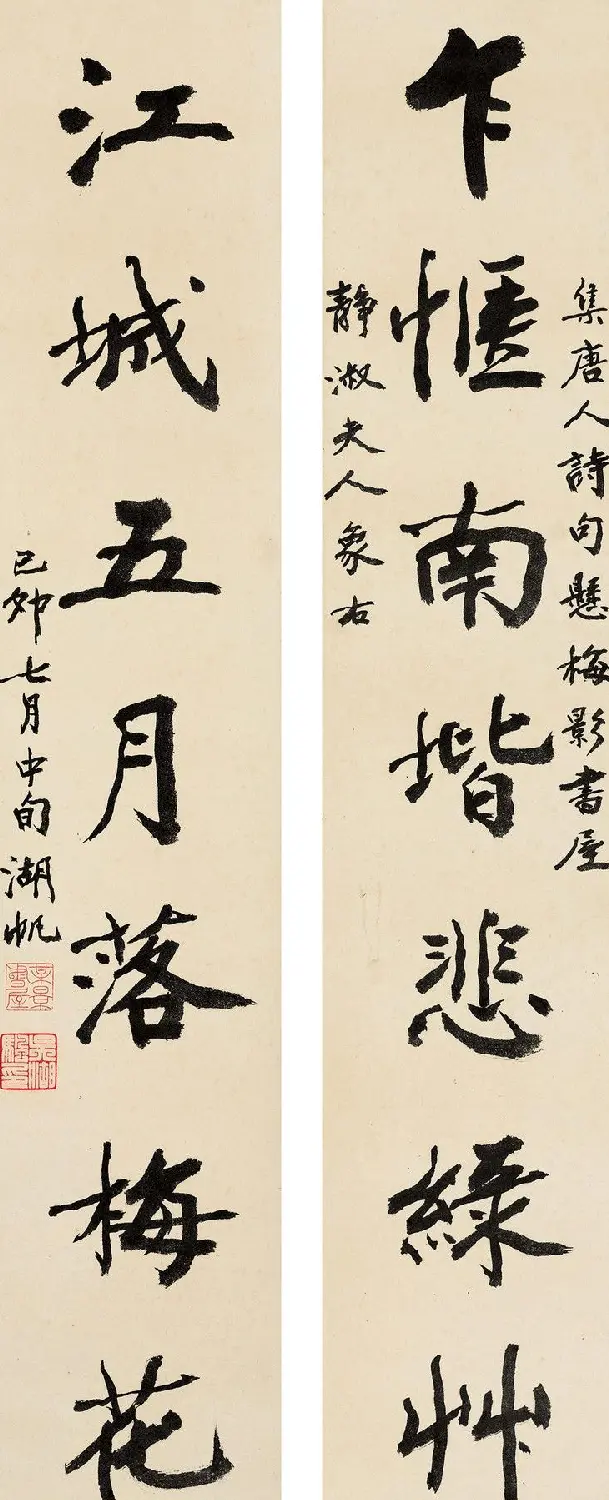 集唐人詩句懸梅影書屋
乍愜南堦悲綠艸
靜淑夫人象右
江城五月落梅花
己卯七月中旬湖帆
吳湖颿印